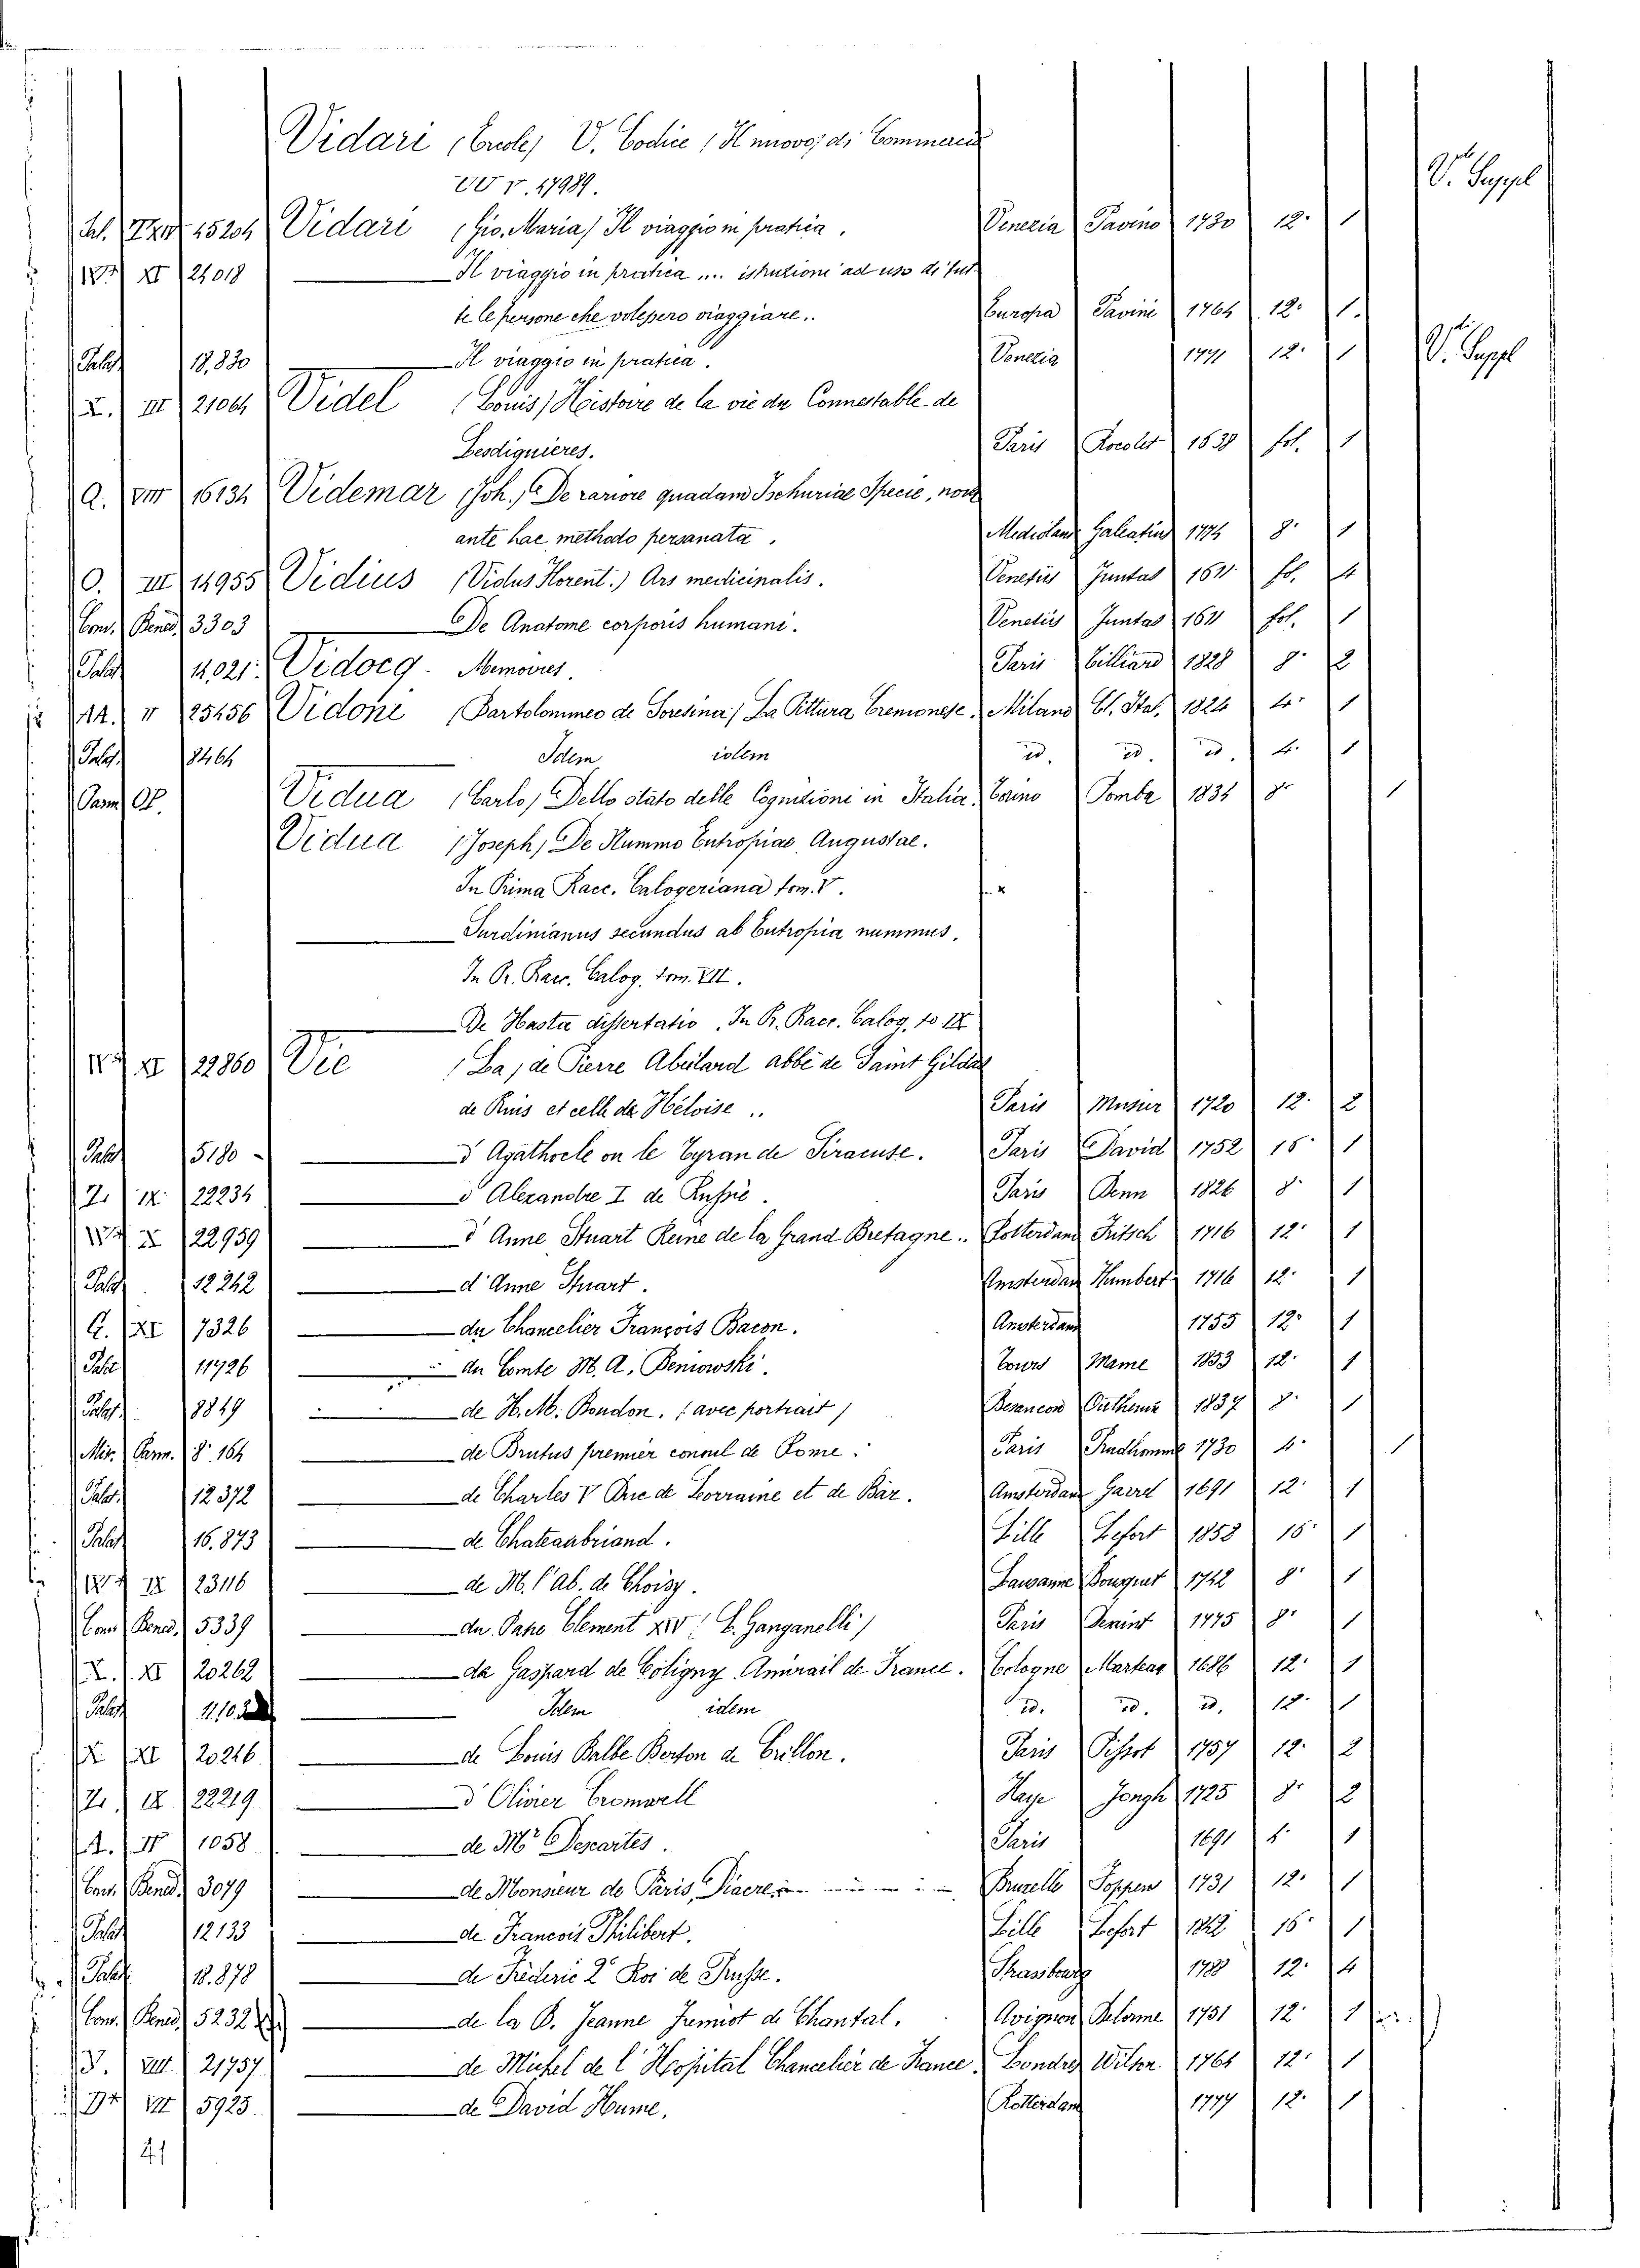 Vidari (Ercole) V. Codice (Il nuovo) di Commercio
V. Suppl
17989.
15204 Vidari (Gio. Maria) Il viaggio in pratica. Venezia Pavino 1730 12. 1
XI 21018 Il viaggio in pratica ... istruzione ad uso di tut-
te le persone che volessero viaggiare. Europa Pavini 1764 12. 1.
Palat 18,830 Il viaggio in pratica. Venezia 1791 12. 1 V. Suppl
Z. III 21064 Videl (Louis) Histoire de la vie du Connestable de
Lesdiguières. Paris Rocolet 1638 fol. 1
Q. VIII 16134 Videmar (Joh.) De rariore quadam Ischuriae Specie, non
ante hac methodo persanata. Mediolani Galeatius 1774 8. 1
O. III 14955 Vidius (Vidus Florent.) Ars medicinalis. Venetiis Juntas 1611 fol. 4
Conv. Bened. 3303 De Anatome corporis humani. Venetiis Juntas 1611 fol. 1
Palat 14,021. Vidocq. Memoires. Paris Billiard 1828 8. 2
AA. II 25456 Vidoni (Bartolommeo de Soresina) La Pittura Cremonese. Milano Cl. Ital. 1824 4. 1
Palat. 8464 Idem idem id. id. id. 4. 1
Parm. Vidua (Carlo) Dello stato delle Cognizioni in Italia. Torino Pomba 1834 8. 1
Vidua (Joseph) De Nummo Eutropiae Augustae.
In Prima Racc. Calogeriana tom. V.
Surdinianus secundus ab Eutropia nummus.
In R. Racc. Calog. tom. VII.
De Hasta dissertatio. In R. Racc. Calog. to IX
XI 22860 Vie (La) de Pierre Abeilard abbé de Saint Gildas
de Ruis et cell de Héloise .. Paris Musier 1720 12. 2
Palat 5180 d'Agathocle ou le Tyran de Siracuse. Paris David 1752 18. 1
Z. IX. 22234 d'Alexandre I de Russie. Paris Denn 1826 8. 1
22959 d'Anne Stuart Reine de la Grand Bretagne .. Rotterdam Fritsch 1716 12. 1
Palat. 12242 d'Anne Stuart. Amsterdam Humbert 1716 12. 1
G. XI 7326 du Chancelier François Bacon. Amsterdam 1755 12. 1
Palat 11726 du Comte M. A. Beniowski. Tours Mame 1853 12. 1
Palat. 8849 de H. M. Boudon. (avec portrait) Besancon Outhenin 1837 8. 1
Mis. Parm. 8. 164 de Brutus premier consul de Rome. Paris Prudhomme 1730 4. 1
Palat. 12372 de Charles V Duc de Lorraine et de Bar. Amsterdam Garrel 1691 12. 1
Palat 16.873 de Chateaubriand. Lille Lefort 1858 18. 1
23116 de M. l'Ab. de Choisy. Lausanne Bousquet 1742 8. 1
Conv. Bened. 5339 du Pape Clement XIV (L. Ganganelli) Paris 1775 8. 1
Z. XI 20262 da Gaspard de Coligny Amirail de France. Cologne Marteau 1686 12. 1
Palat Idem idem id. id. id. 12. 1
XI 20246 de Louis Balbe Berton de Crillon. Paris Pissot 1757 12. 2
Z. IX. 22219 d'Olivier Cromwell Haye Jongh 1725 8. 2
A. IV 1058 de Mr Descartes. Paris 1691 1
Conv. Bened. 3079 de Monsieur de Paris, Diacre. Bruxelle Foppen 1731 12. 1
Palat 12133 de François Philibert. Lille Lefort 1842 18. 1
Palat 18.878 de Frédéric 2° Roi de Prusse. Strasbourg 1788 12. 4
Conv. Bened. 5232 de la B. Jeanne Jemiot de Chantal. Avignon Delorme 1751 12. 1
VIII. 21757 de Michel de l'Hospital Chancelier de France. Londres Wilson 1764 12. 1
5923. de David Hume. Rotterdam 1779 12. 1
41